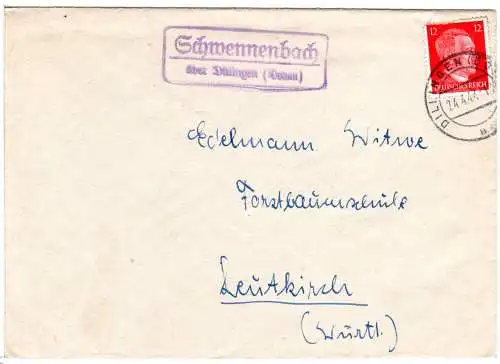 Schwennenbach
über Dillingen (Donau)
12 12
DEUTSCHES REICH
DILLINGEN (
24.4.4
Edelmann Witwe
Forstbaumschule
Leutkirch
(Württ.)